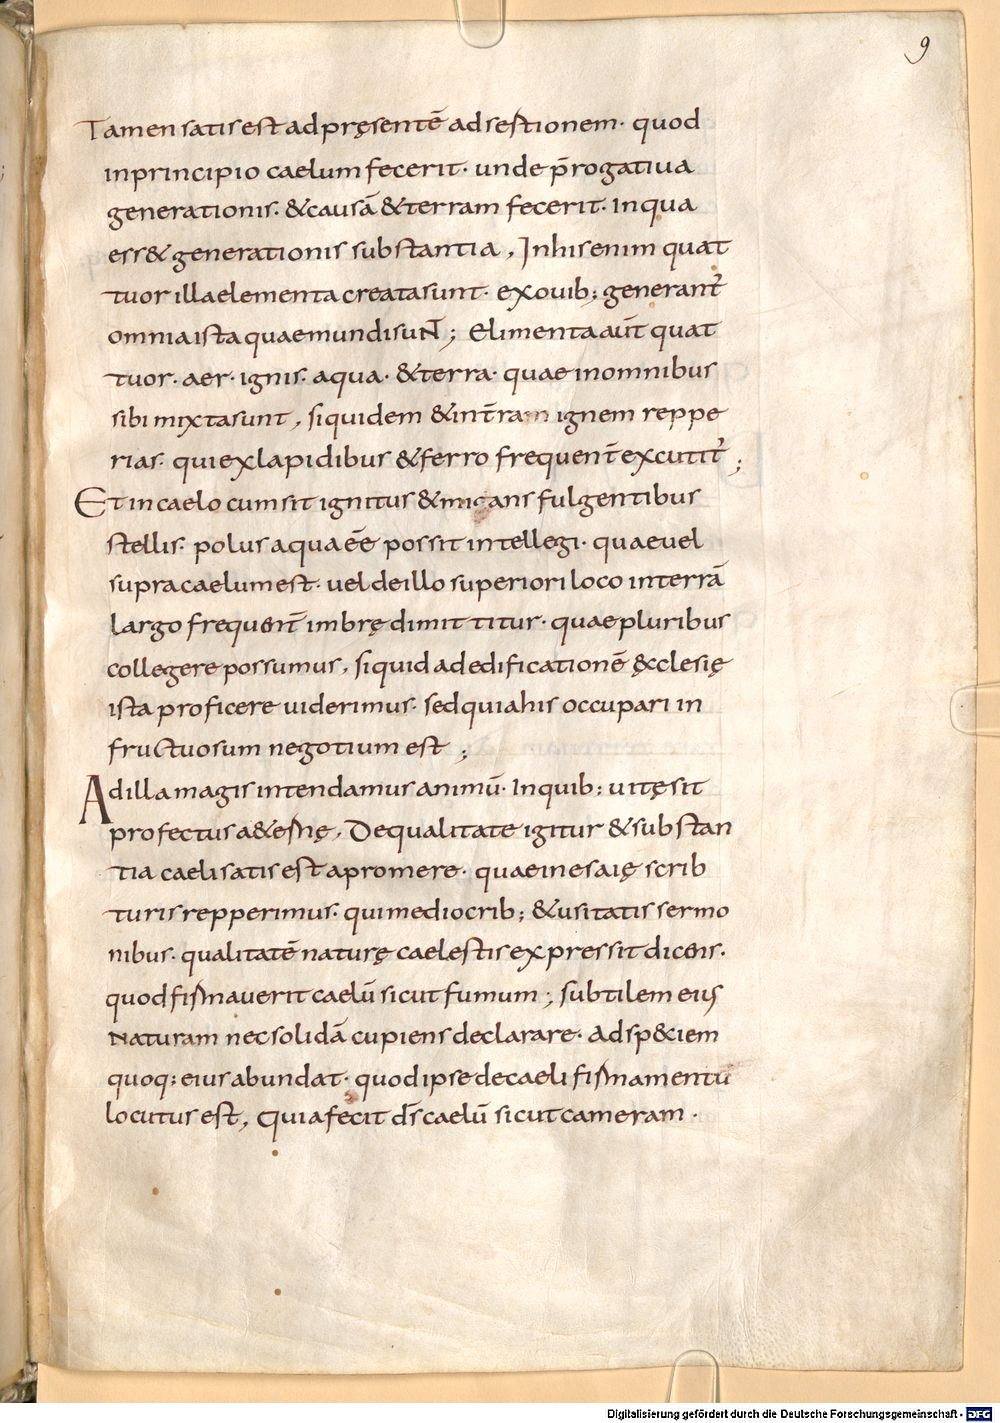 9
Tamen satis est ad pręsentē adsestionem · quod
inprincipio caelum fecerit · unde p̄rogatiua
generationis · &causā &terram fecerit · Inqua
ess& generationis substantia , Inhis enim quat
tuor illa elementa creata sunt · exquib; generant̄
omnia ista quae mundi suNT ; Elimenta aut̄ quat
tuor · aer · ignis · aqua · &terra · quae inomnibus
sibi mixta sunt , siquidem &int̄ram ignem reppe
rias · qui ex lapidibus &ferro frequent̄ excutit̄ ;
Et in caelo cum sit ignitus &micans fulgentibus
stellis · polus aqua eē possit intellegi · quae uel
supra caelum est · uel de illo superiori loco interrā
largo frequent̄ imbrę dimittitur · quae pluribus
collegere possumus , siquid ad edificationē &clesię
ista proficere uiderimus · sed quia his occupari in
fructuosum negotium est ;
Ad illa magis intendamus animū · Inquib; uitę sit
profectus a&ernę , De qualitate igitur &substan
tia caeli satis est apromere · quae in esaię scrib
turis repperimus · qui mediocrib; &usitatis sermo
nibus · qualitatē naturę caelestis expressit dicens ·
quod firmauerit caelū sicut fumum ; subtilem eius
Naturam nec solidā cupiens declarare · Ad sp&iem
quoq; eius abundat · quod ipse de caeli firmamentū
locutus est , Quia fecit d̄s caelū sicut cameram ·
Digitalisierung gefördert durch die Deutsche Forschungsgemeinschaft - DFG